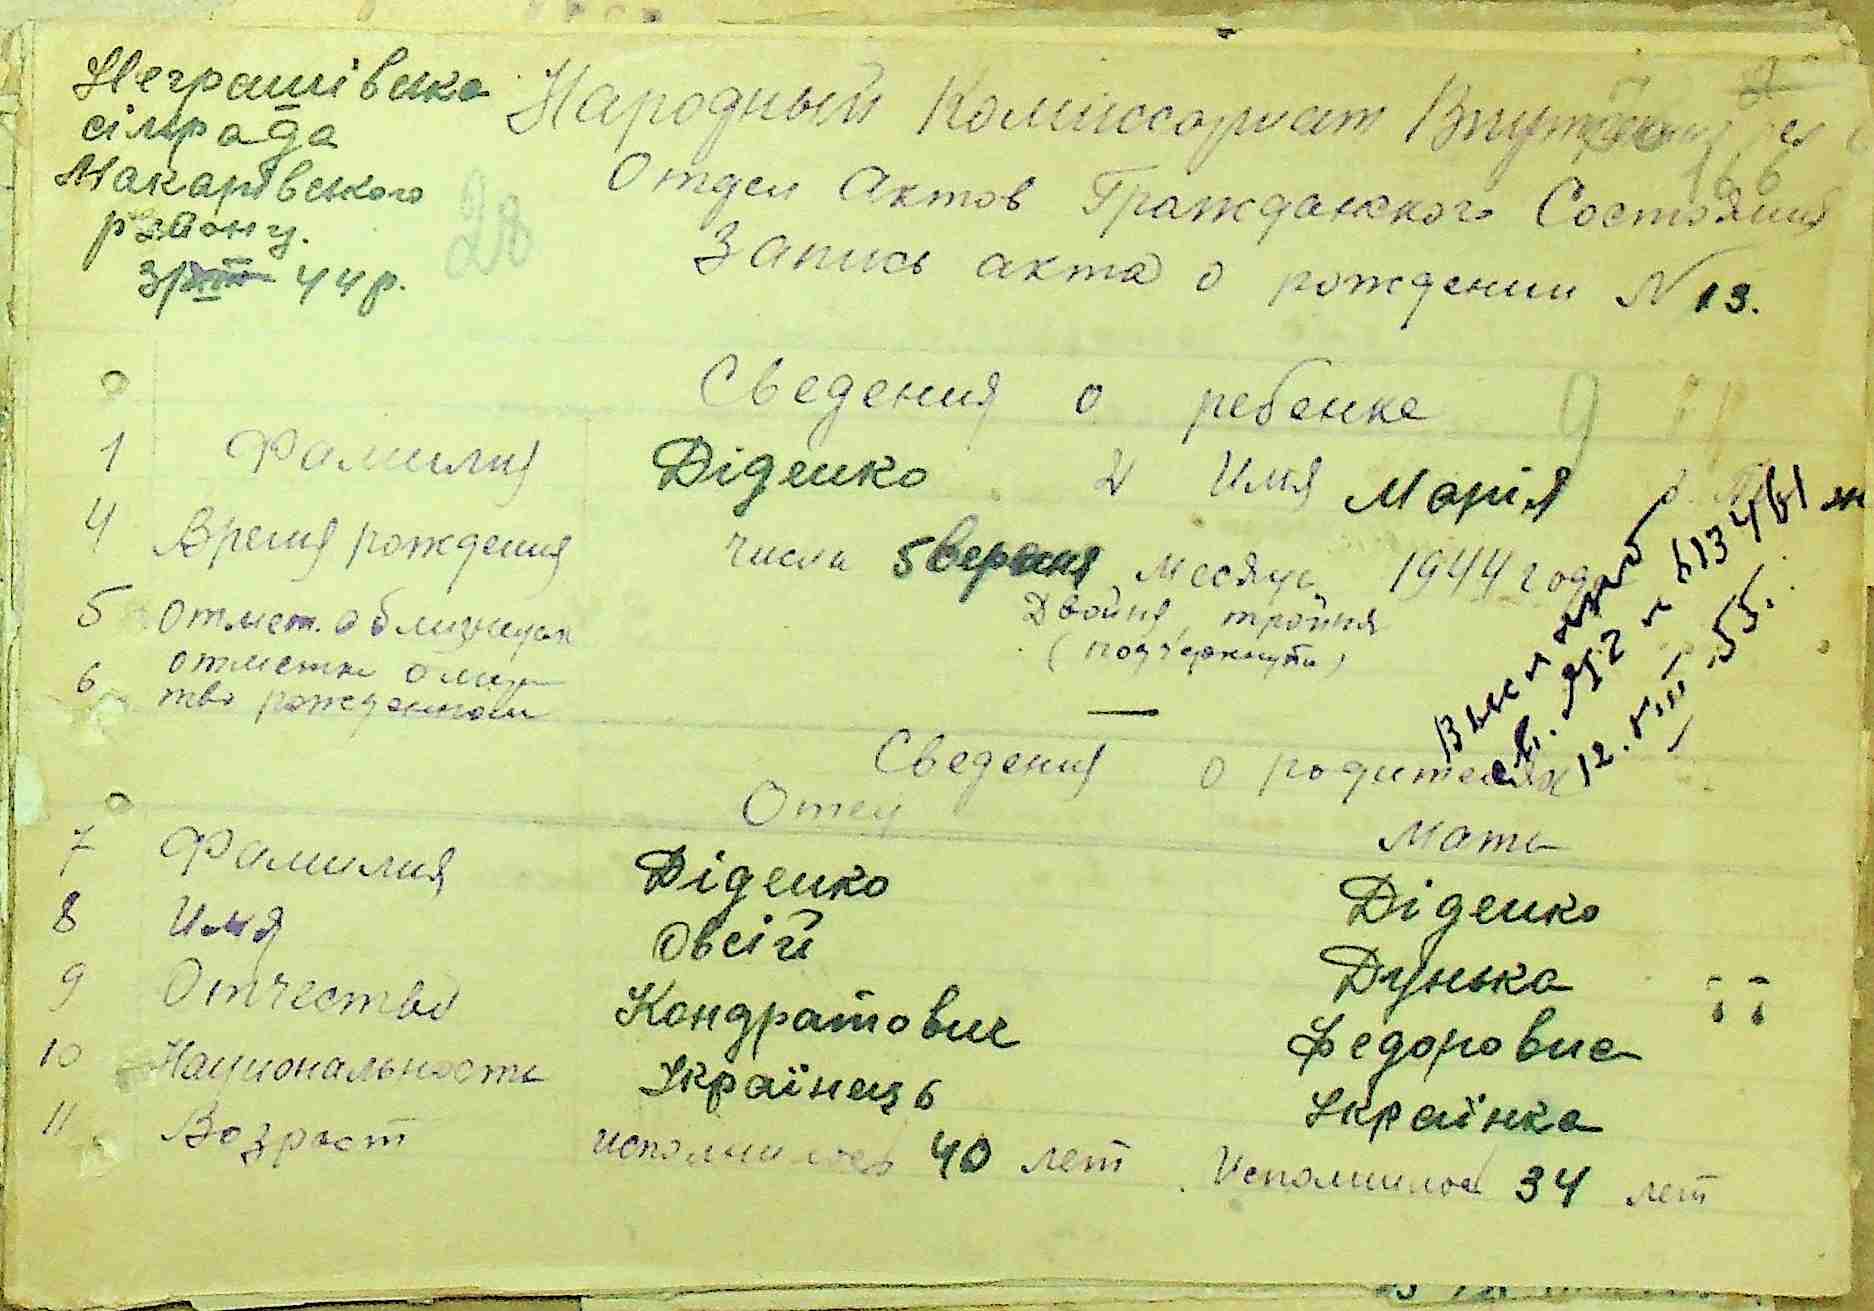 Неграшівська
сільрада
Макарівського
району.
44 р.
28
Народный Комиссариат
166
Отдел Актов Гражданского Состояния
Запись акта о рождении N 13.
Сведения о ребенке
1 Фамилия Діденко 2 Имя Марія
4 Время рождения числа 5 вересня месяца 1944 год
5 отмет. о близнецах Двойня, тройня
(подчеркнути)
6 отметка о мер
тво рожденном —
12.VIII.55.
Сведения о родителях
Отец Мать
7 Фамилия Діденко Діденко
8 Имя Овсій Дунька
9 Отчество Кондратович Федоровна
10 Национальность Українець Українка
11 Возраст исполнилось 40 лет Исполнилос 34 лет